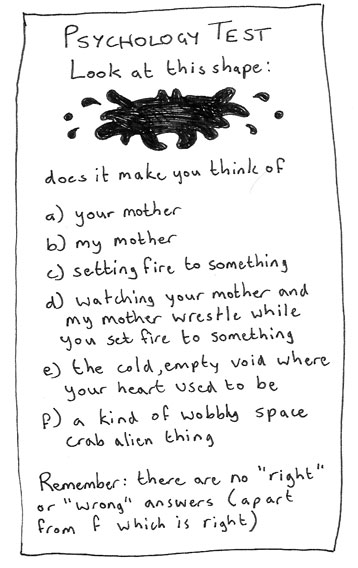 PSYCHOLOGY TEST
Look at this shape:
does it make you think of
a) your mother
b) my mother
c) setting fire to something
d) watching your mother and
my mother wrestle while
you set fire to something
e) the cold, empty void where
your heart used to be
f) a kind of wobbly space
crab alien thing
Remember: there are no "right"
or "wrong" answers (apart
from f which is right)